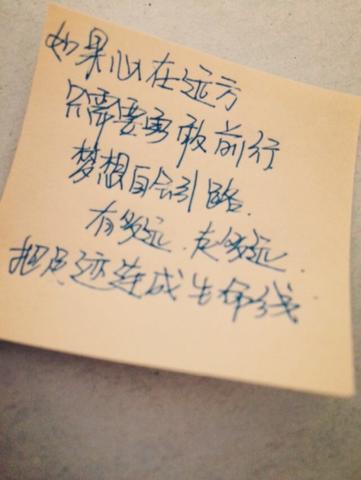 如果心在远方
只需要勇敢前行
梦想自会引路.
有多远.走多远.
把足迹连成生命线.